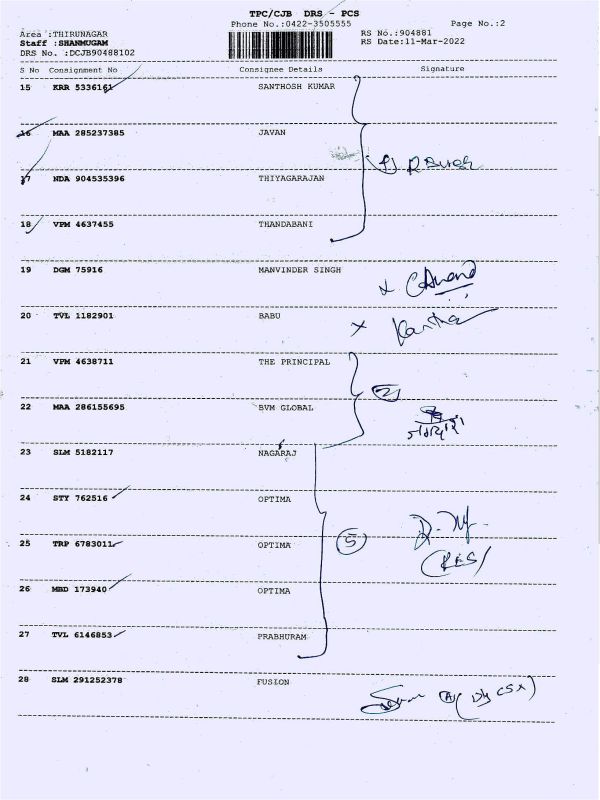 TPC/CJB DRS - PCS
Phone No.:0422-3505555
Page No.:2
Area :THIRUNAGAR
Staff :SHANMUGAM
DRS No. :DCJB90488102
RS No.:904881
RS Date:11-Mar-2022
S No Consignment No Consignee Details Signature
15 KRR 5336161 SANTHOSH KUMAR
16 MAA 285237385 JAVAN
17 NDA 904535396 THIYAGARAJAN
18 VPM 4637455 THANDABANI
19 DGM 75916 MANVINDER SINGH
20 TVL 1182901 BABU
21 VPM 4638711 THE PRINCIPAL
2
22 MAA 286155695 BVM GLOBAL
23 SLM 5182117 NAGARAJ
24 STY 762516 OPTIMA
25 TRP 6783011 OPTIMA
5
26 MBD 173940 OPTIMA
27 TVL 6146853 PRABHURAM
28 SLM 291252378 FUSION